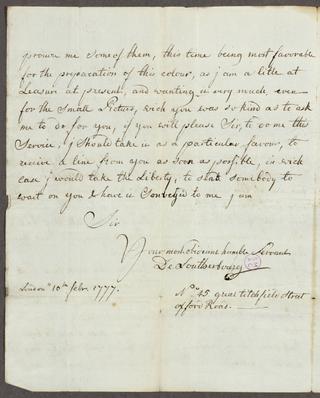 procure me some of them, this time being most favorable
for the preparation of this colour, as j am a litle at
Leasure at present, and wanting it very much, even
for the Small Picture, wich you was so kind as to ask
me to do for you, if you will please Sir, to do me this
Service, j Should take it as a particular favour, to
receive a line from you as soon as possible, in wich
case j would take the Liberty, to send somebody to
wait on you & have it Convey'd to me j am
Sir
Your most obedient humble Servant
De Loutherbourg
London 10th febr. 1777.
No. 45 great titchfield Street
oxford Road.